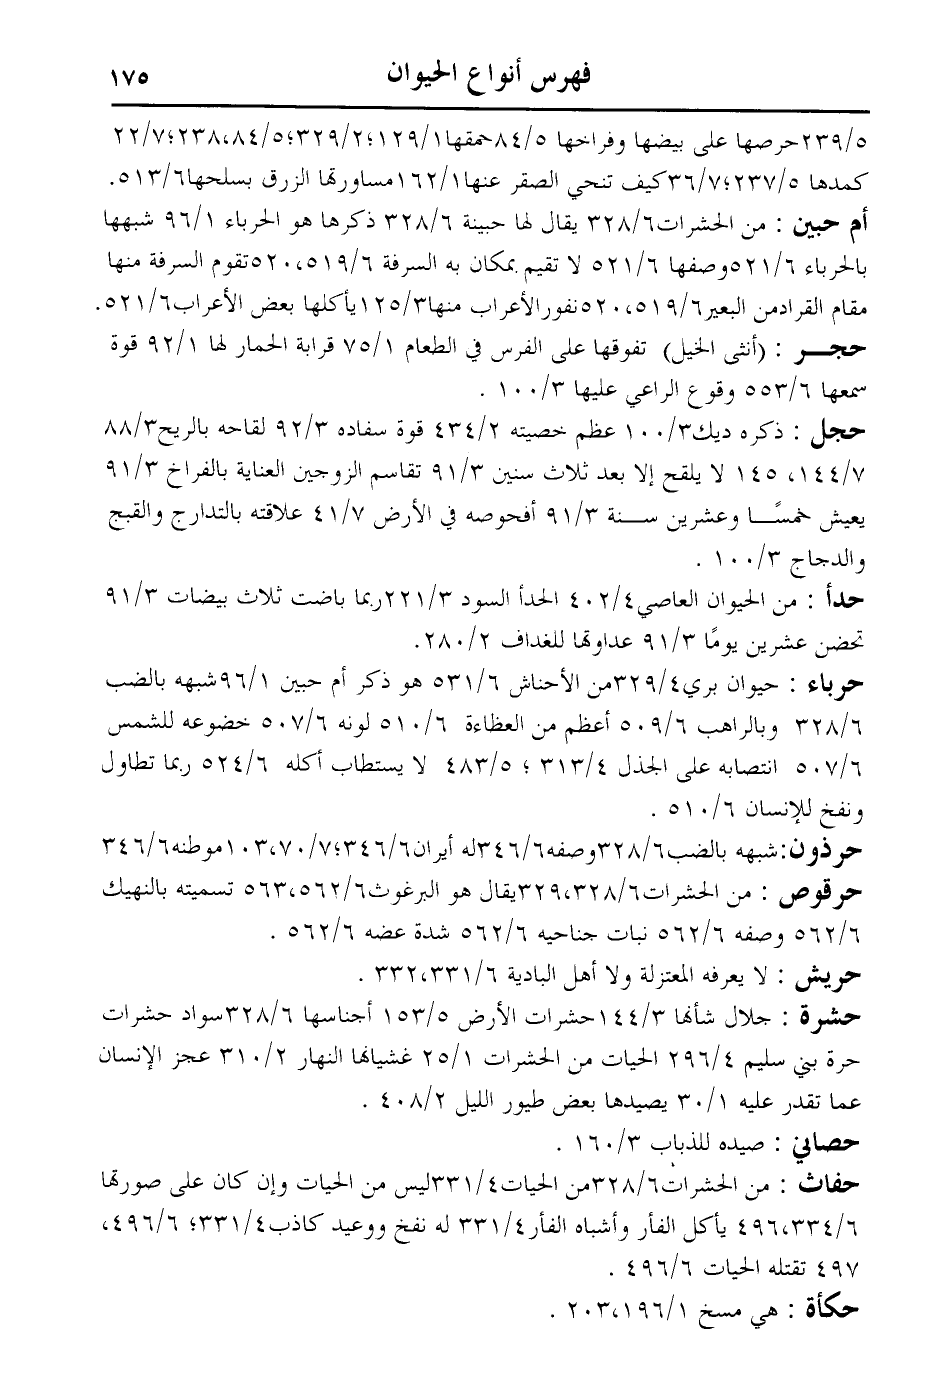 فهرس أنواع الحيوان ١٧٥
٢٣٩/٥حرصها على بيضها وفراخها ٨٤/٥حمقها١٢٩/١؛٣٢٩/٢؛٢٣٨،٨٤/٥؛٢٢/٧
كمدها ٢٣٧/٥؛٣٦/٧كيف تنحي الصقر عنها١٦٢/١مساورتها الزرق بسلحها٥١٣/٦.
أم حبين : من الحشرات٣٢٨/٦ يقال لها حبينة ٣٢٨/٦ ذكرها هو الحرباء ٩٦/١ شبهها
بالحرباء ٥٢١/٦وصفها ٥٢١/٦ لا تقيم بمكان به السرفة ٥٢٠،٥١٩/٦تقوم السرفة منها
مقام القرادمن البعير٥٢٠،٥١٩/٦نفورالأعراب منها١٢٥/٣يأكلها بعض الأعراب٥٢١/٦.
حجـــر : (أنثى الخيل) تفوقها على الفرس في الطعام ٧٥/١ قرابة الحمار لها ٩٢/١ قوة
سمعها ٥٥٣/٦ وقوع الراعي عليها ١٠٠/٣ .
حجل : ذكره ديك١٠٠/٣ عظم خصيته ٤٣٤/٢ قوة سفاده ٩٢/٣ لقاحه بالريح٨٨/٣
١٤٤/٧، ١٤٥ لا يلقح إلا بعد ثلاث سنين ٩١/٣ تقاسم الزوجين العناية بالفراخ ٩١/٣
يعيش خمسًـــا وعشرين ســـنة ٩١/٣ أفحوصه في الأرض ٤١/٧ علاقته بالتدارج والقبج
والدجاج ١٠٠/٣ .
حدأ : من الحيوان العاصي٤٠٢/٤ الحدأ السود ٢٢١/٣ربما باضت ثلاث بيضات ٩١/٣
تحضن عشرين يومًا ٩١/٣ عداوتها للغداف ٢٨٠/٢.
حرباء : حيوان بري٣٢٩/٤من الأحناش ٥٣١/٦ هو ذكر أم حبين ٩٦/١شبهه بالضب
٣٢٨/٦ وبالراهب ٥٠٩/٦ أعظم من العظاءة ٥١٠/٦ لونه ٥٠٧/٦ خضوعه للشمس
٥٠٧/٦ انتصابه على الجذل ٣١٣/٤ ؛ ٤٨٣/٥ لا يستطاب أكله ٥٢٤/٦ ربما تطاول
ونفخ للإنسان ٥١٠/٦ .
حرذون:شبهه بالضب٣٢٨/٦وصفه٣٤٦/٦له أيران٣٤٦/٦؛١٠٣،٧٠/٧موطنه٣٤٦/٦
حرقوص : من الحشرات٣٢٩،٣٢٨/٦يقال هو البرغوث٥٦٣،٥٦٢/٦ تسميته بالنهيك
٥٦٢/٦ وصفه ٥٦٢/٦ نبات جناحيه ٥٦٢/٦ شدة عضه ٥٦٢/٦ .
حريش : لا يعرفه المعتزلة ولا أهل البادية ٣٣٢،٣٣١/٦ .
حشرة : جلال شأنها ١٤٤/٣حشرات الأرض ١٥٣/٥ أجناسها ٣٢٨/٦سواد حشرات
حرة بني سليم ٢٩٦/٤ الحيات من الحشرات ٢٥/١ غشيانها النهار ٣١٠/٢ عجز الإنسان
عما تقدر عليه ٣٠/١ يصيدها بعض طيور الليل ٤٠٨/٢ .
حصاني : صيده للذباب ١٦٠/٣ .
حفاث : من الحشرات٣٢٨/٦من الحيات٣٣١/٤ليس من الحيات وإن كان على صورتها
٤٩٦،٣٣٤/٦ يأكل الفأر وأشباه الفأر٣٣١/٤ له نفخ ووعيد كاذب٣٣١/٤؛ ٤٩٦/٦،
٤٩٧ تقتله الحيات ٤٩٦/٦ .
حكأة : هي مسخ ٢٠٣،١٩٦/١ .